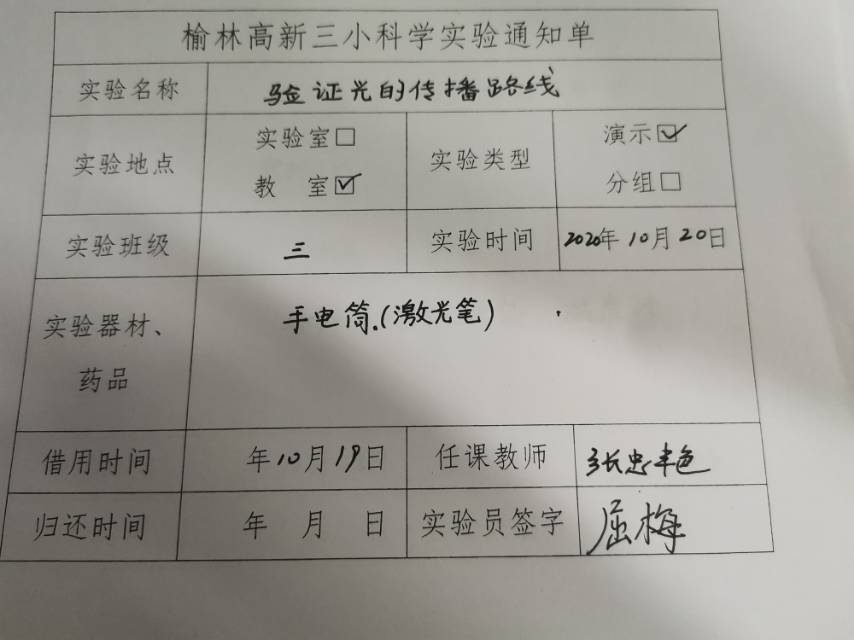 榆林高新三小科学实验通知单
实验名称 验证光的传播路线
实验地点 实验室□ 教 室☑ 实验类型 演示☑ 分组□
实验班级 三 实验时间 2020年10月20日
实验器材、药品 手电筒.(激光笔)
借用时间 年10月19日 任课教师 张忠
归还时间 年 月 日 实验员签字 屈梅